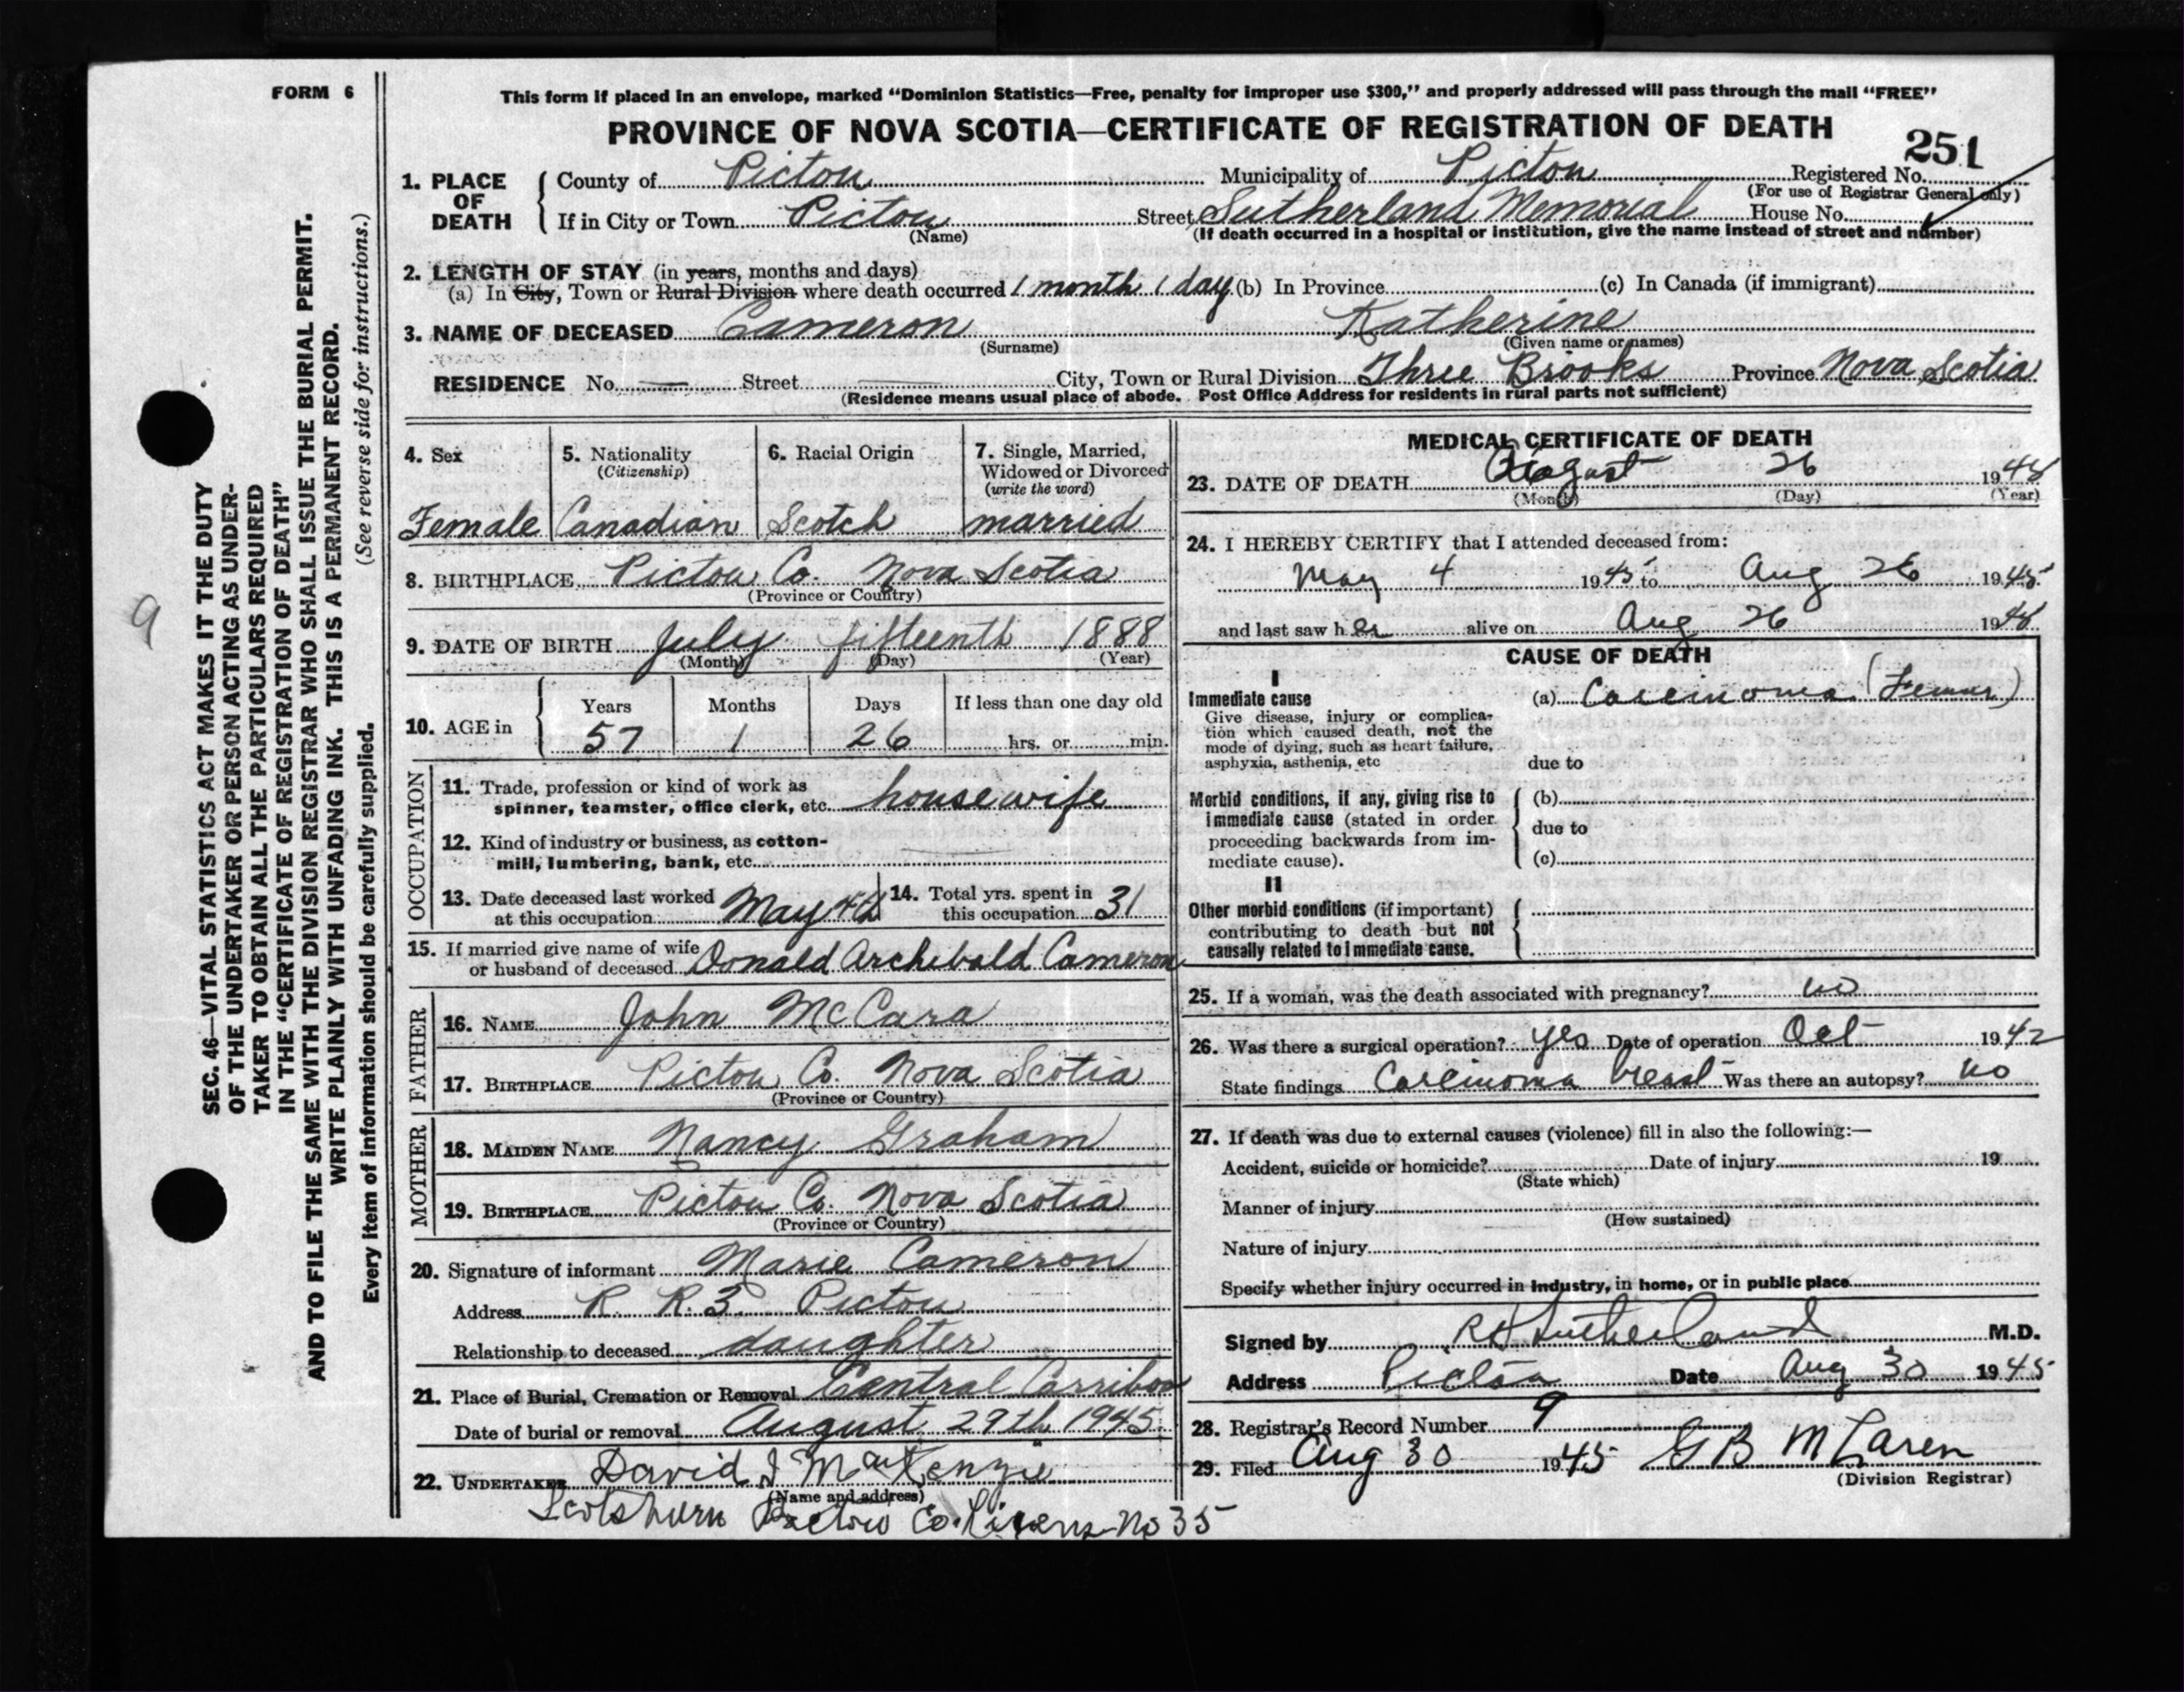 FORM 6
This form if placed in an envelope, marked "Dominion Statistics—Free, penalty for improper use $300," and properly addressed will pass through the mail "FREE"
PROVINCE OF NOVA SCOTIA—CERTIFICATE OF REGISTRATION OF DEATH
251
1. PLACE OF DEATH
County of Pictou Municipality of Pictou Registered No.
(For use of Registrar General only)
If in City or Town Pictou Street Sutherland Memorial House No.
(Name) (If death occurred in a hospital or institution, give the name instead of street and number)
2. LENGTH OF STAY (in years, months and days)
(a) In City, Town or Rural Division where death occurred 1 month 1 day (b) In Province (c) In Canada (if immigrant)
3. NAME OF DECEASED Cameron Katherine
(Surname) (Given name or names)
RESIDENCE No. — Street — City, Town or Rural Division Three Brooks Province Nova Scotia
(Residence means usual place of abode. Post Office Address for residents in rural parts not sufficient)
4. Sex 5. Nationality (Citizenship) 6. Racial Origin 7. Single, Married, Widowed or Divorced (write the word)
Female Canadian Scotch married
8. BIRTHPLACE Pictou Co. Nova Scotia
(Province or Country)
9. DATE OF BIRTH July fifteenth 1888
(Month) (Day) (Year)
10. AGE in Years Months Days If less than one day old
57 1 26 hrs. or min.
OCCUPATION
11. Trade, profession or kind of work as
spinner, teamster, office clerk, etc. housewife
12. Kind of industry or business, as cotton-
mill, lumbering, bank, etc.
13. Date deceased last worked at this occupation May 4th 14. Total yrs. spent in this occupation 31
15. If married give name of wife
or husband of deceased Donald Archibald Cameron
FATHER
16. NAME John McCara
17. BIRTHPLACE Pictou Co. Nova Scotia
(Province or Country)
MOTHER
18. MAIDEN NAME Nancy Graham
19. BIRTHPLACE Pictou Co. Nova Scotia
(Province or Country)
20. Signature of informant Marie Cameron
Address R. R. 3. Pictou
Relationship to deceased daughter
21. Place of Burial, Cremation or Removal Central Carribou
Date of burial or removal August 29th 1945.
22. UNDERTAKER David J MacKenzie
(Name and address)
Scotsburn Pictou Co. No 35
MEDICAL CERTIFICATE OF DEATH
23. DATE OF DEATH August 26 1945
(Month) (Day) (Year)
24. I HEREBY CERTIFY that I attended deceased from:
May 4 1945 to Aug 26 1945
and last saw her alive on Aug 26 1945
CAUSE OF DEATH
I
Immediate cause
Give disease, injury or complica-
tion which caused death, not the
mode of dying, such as heart failure,
asphyxia, asthenia, etc
(a) Carcinoma (Femur)
due to
Morbid conditions, if any, giving rise to
immediate cause (stated in order
proceeding backwards from im-
mediate cause).
(b)
due to
(c)
II
Other morbid conditions (if important)
contributing to death but not
causally related to immediate cause.
25. If a woman, was the death associated with pregnancy? no
26. Was there a surgical operation? yes Date of operation Oct 1942
State findings Carcinoma breast Was there an autopsy? no
27. If death was due to external causes (violence) fill in also the following:—
Accident, suicide or homicide? Date of injury 19
(State which)
Manner of injury
(How sustained)
Nature of injury
Specify whether injury occurred in industry, in home, or in public place
Signed by Sutherland M.D.
Address Pictou Date Aug 30 1945
28. Registrar's Record Number 9
29. Filed Aug 30 1945 G B McLaren
(Division Registrar)
SEC. 46—VITAL STATISTICS ACT MAKES IT THE DUTY
OF THE UNDERTAKER OR PERSON ACTING AS UNDER-
TAKER TO OBTAIN ALL THE PARTICULARS REQUIRED
IN THE "CERTIFICATE OF REGISTRATION OF DEATH"
AND TO FILE THE SAME WITH THE DIVISION REGISTRAR WHO SHALL ISSUE THE BURIAL PERMIT.
WRITE PLAINLY WITH UNFADING INK. THIS IS A PERMANENT RECORD.
(See reverse side for instructions.)
Every item of information should be carefully supplied.
9